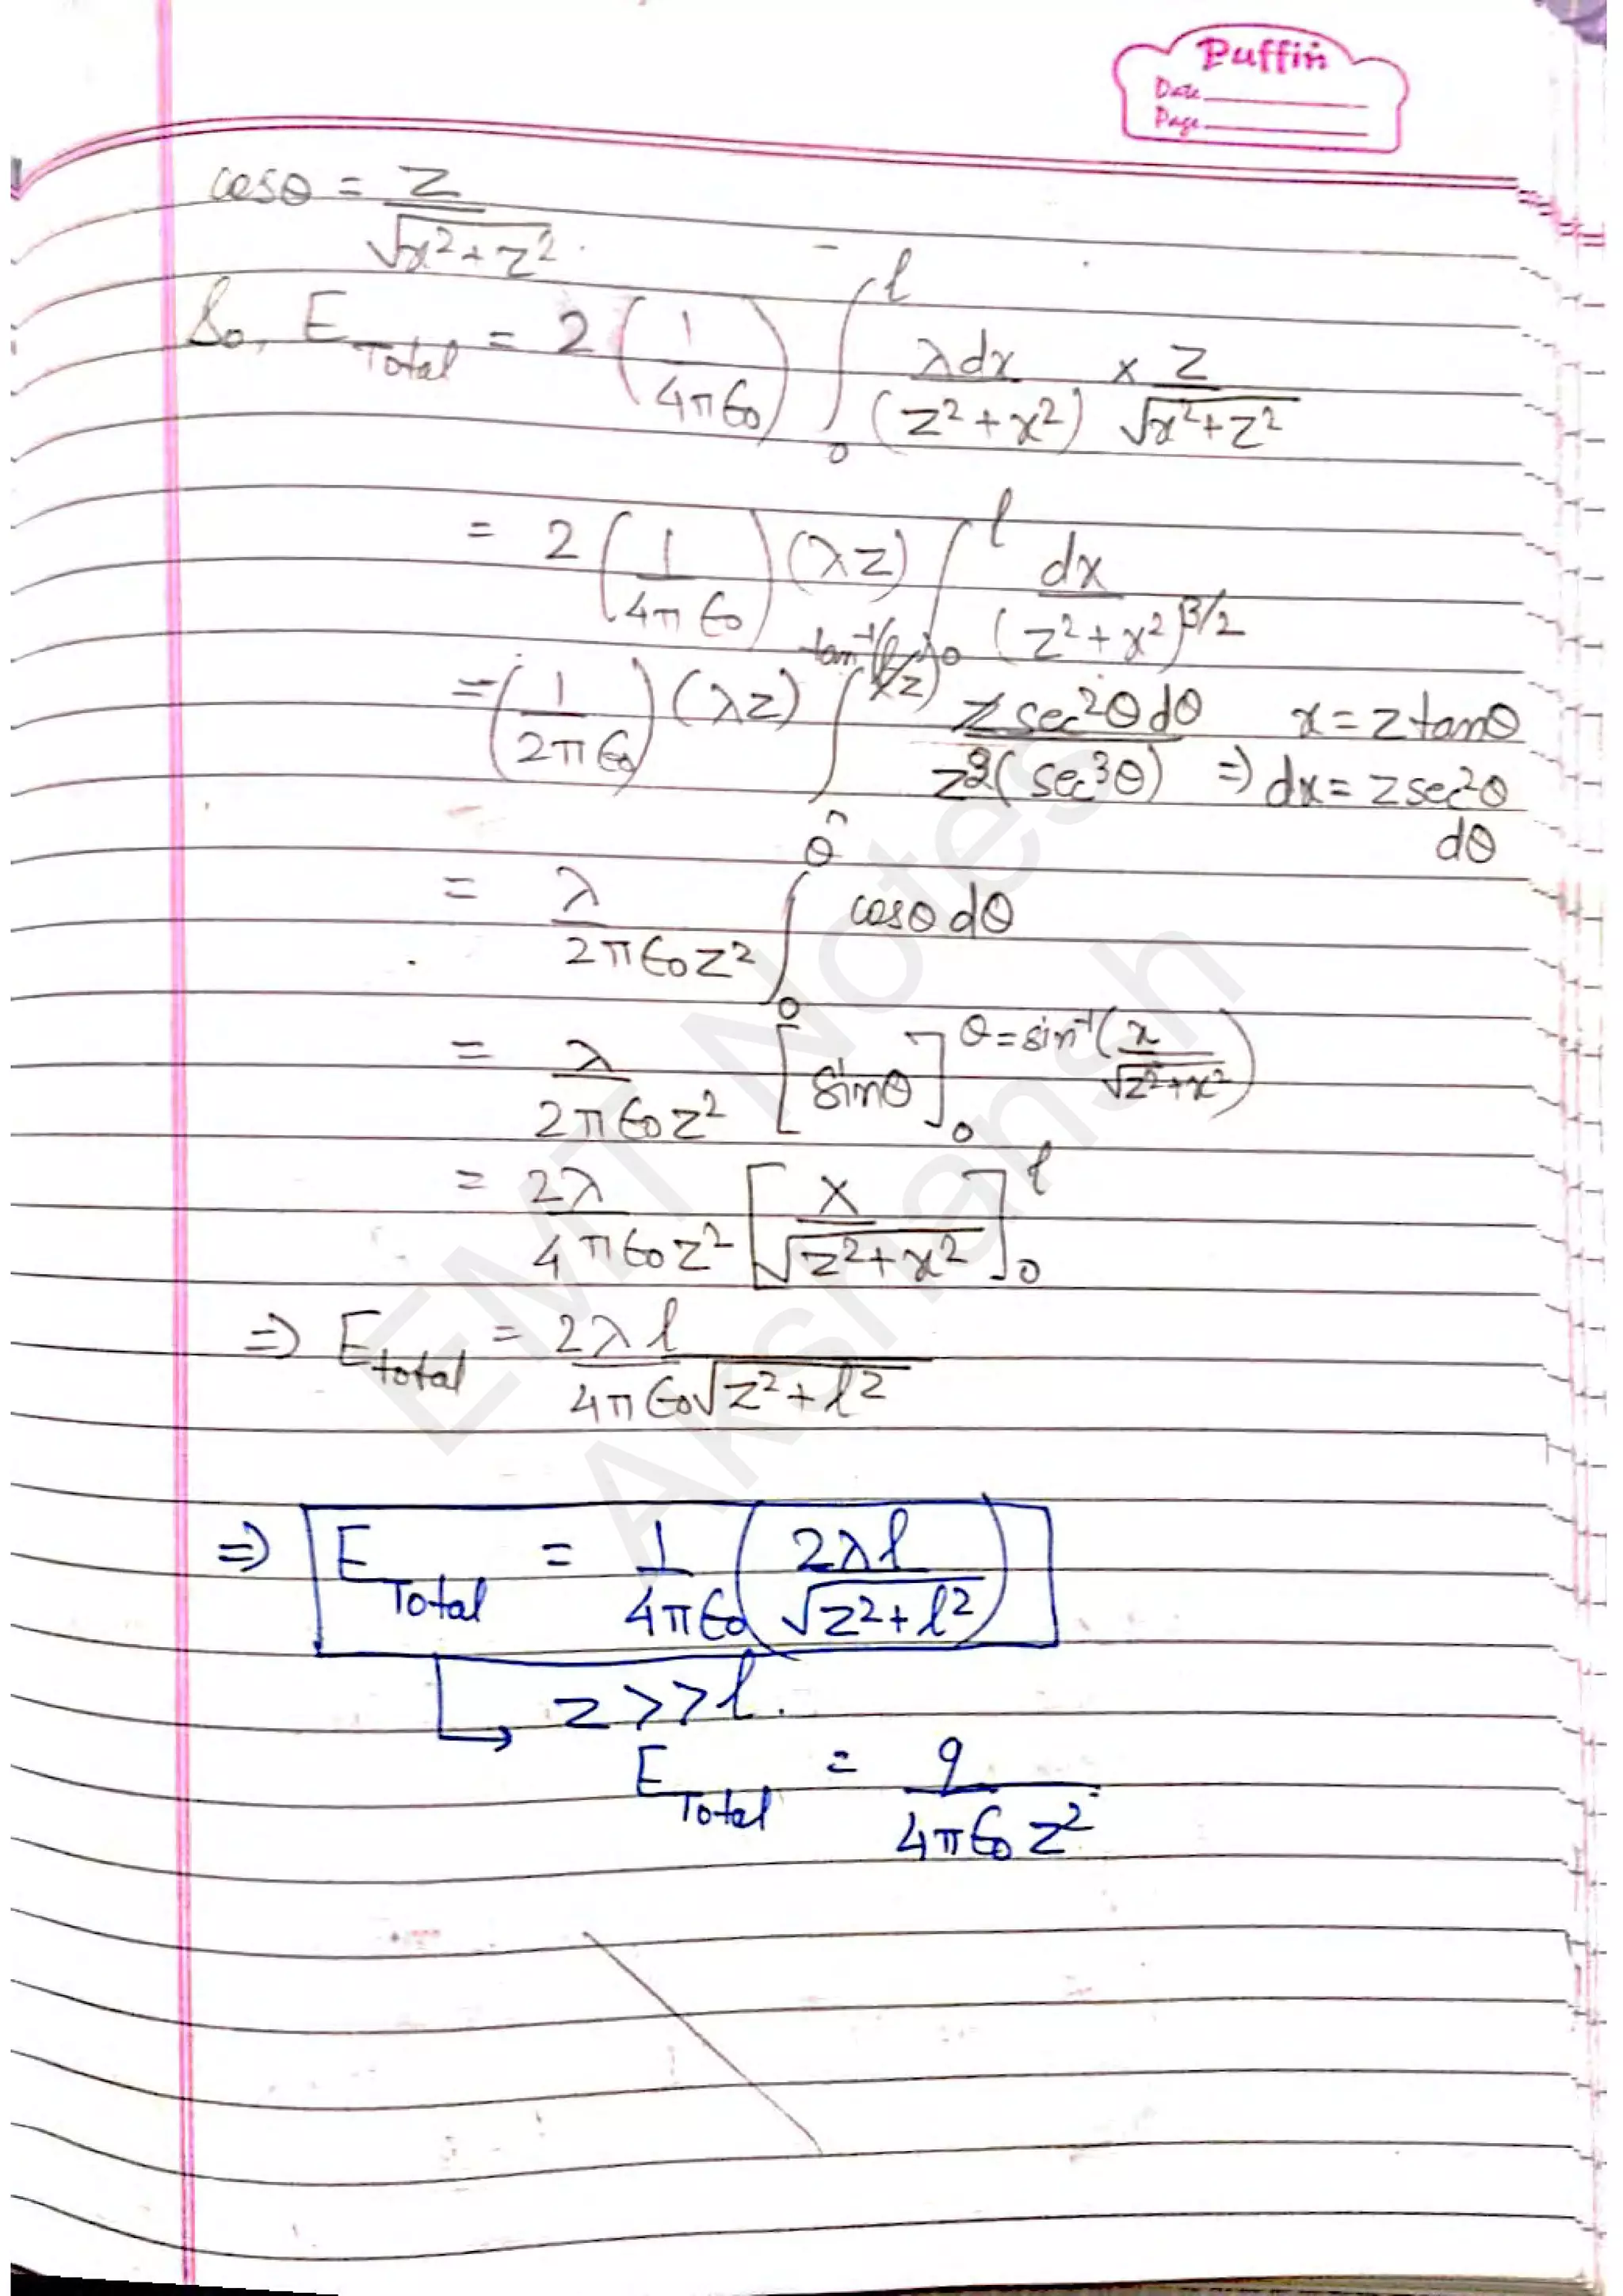 Puffin
Date
Page
cosθ = z / √(x²+z²)
So, E_Total = 2 (1/4πϵ₀) ∫₀^l λdx/(z²+x²) × z/√(x²+z²)
= 2 (1/4πϵ₀) (λz) ∫₀^l dx/(z²+x²)^3/2
= (1/2πϵ₀) (λz) ∫₀^tan⁻¹(l/z) z sec²θ dθ / z³(sec³θ)  x = z tanθ
⇒ dx = z sec²θ dθ
= λ/2πϵ₀z² ∫₀^θ cosθ dθ
= λ/2πϵ₀z² [sinθ]₀^θ = sin⁻¹(x/√(z²+x²))
= 2λ/4πϵ₀z² [x/√(z²+x²)]₀^l
⇒ E_total = 2λl / 4πϵ₀√(z²+l²)
⇒ E_Total = 1/4πϵ₀ (2λl/√(z²+l²))
z >> l.
E_Total = q/4πϵ₀z²
EMT Notes
Akshansh